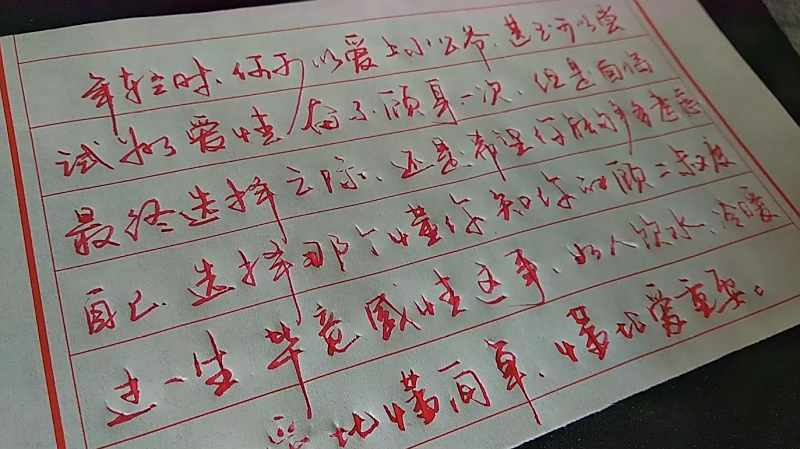 年轻时、你可以爱上小公爷、甚至可以尝
试为爱情奋不顾身一次、但是面临
最终选择之际、还是希望你能多多考虑
自己、选择那个懂你知你的顾二叔度
过一生毕竟感情这事、如人饮水、冷暖
爱比懂简单、懂比爱重要。